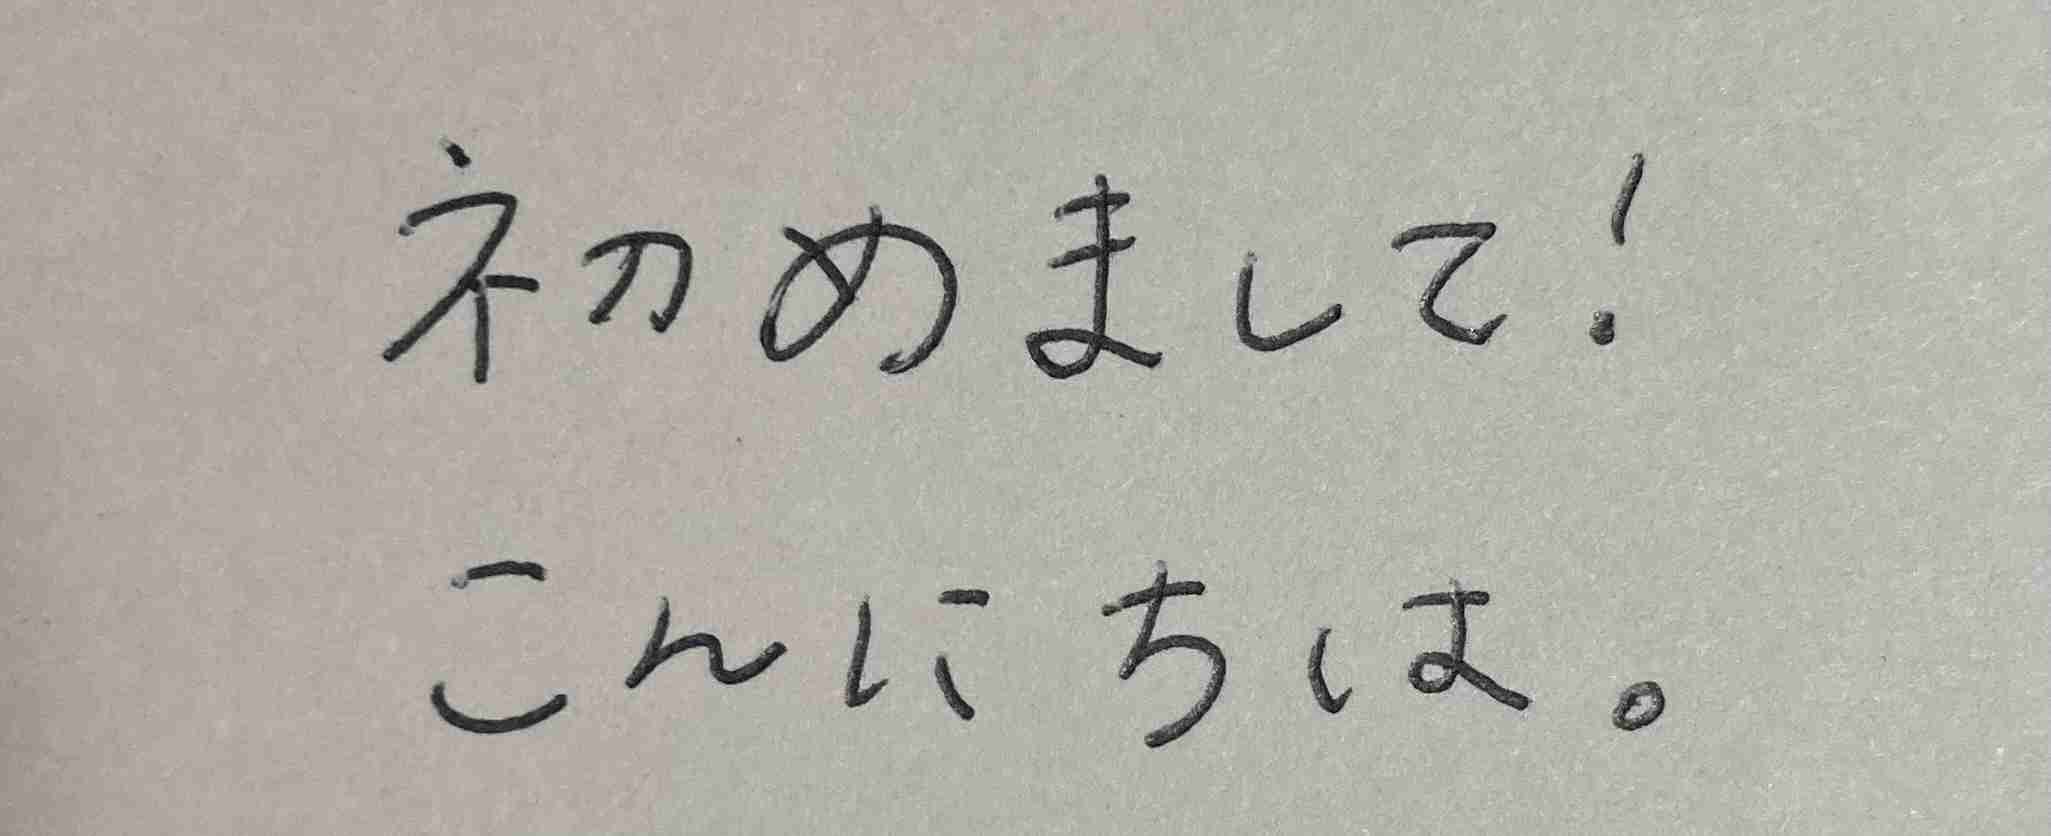 初めまして!
こんにちは。